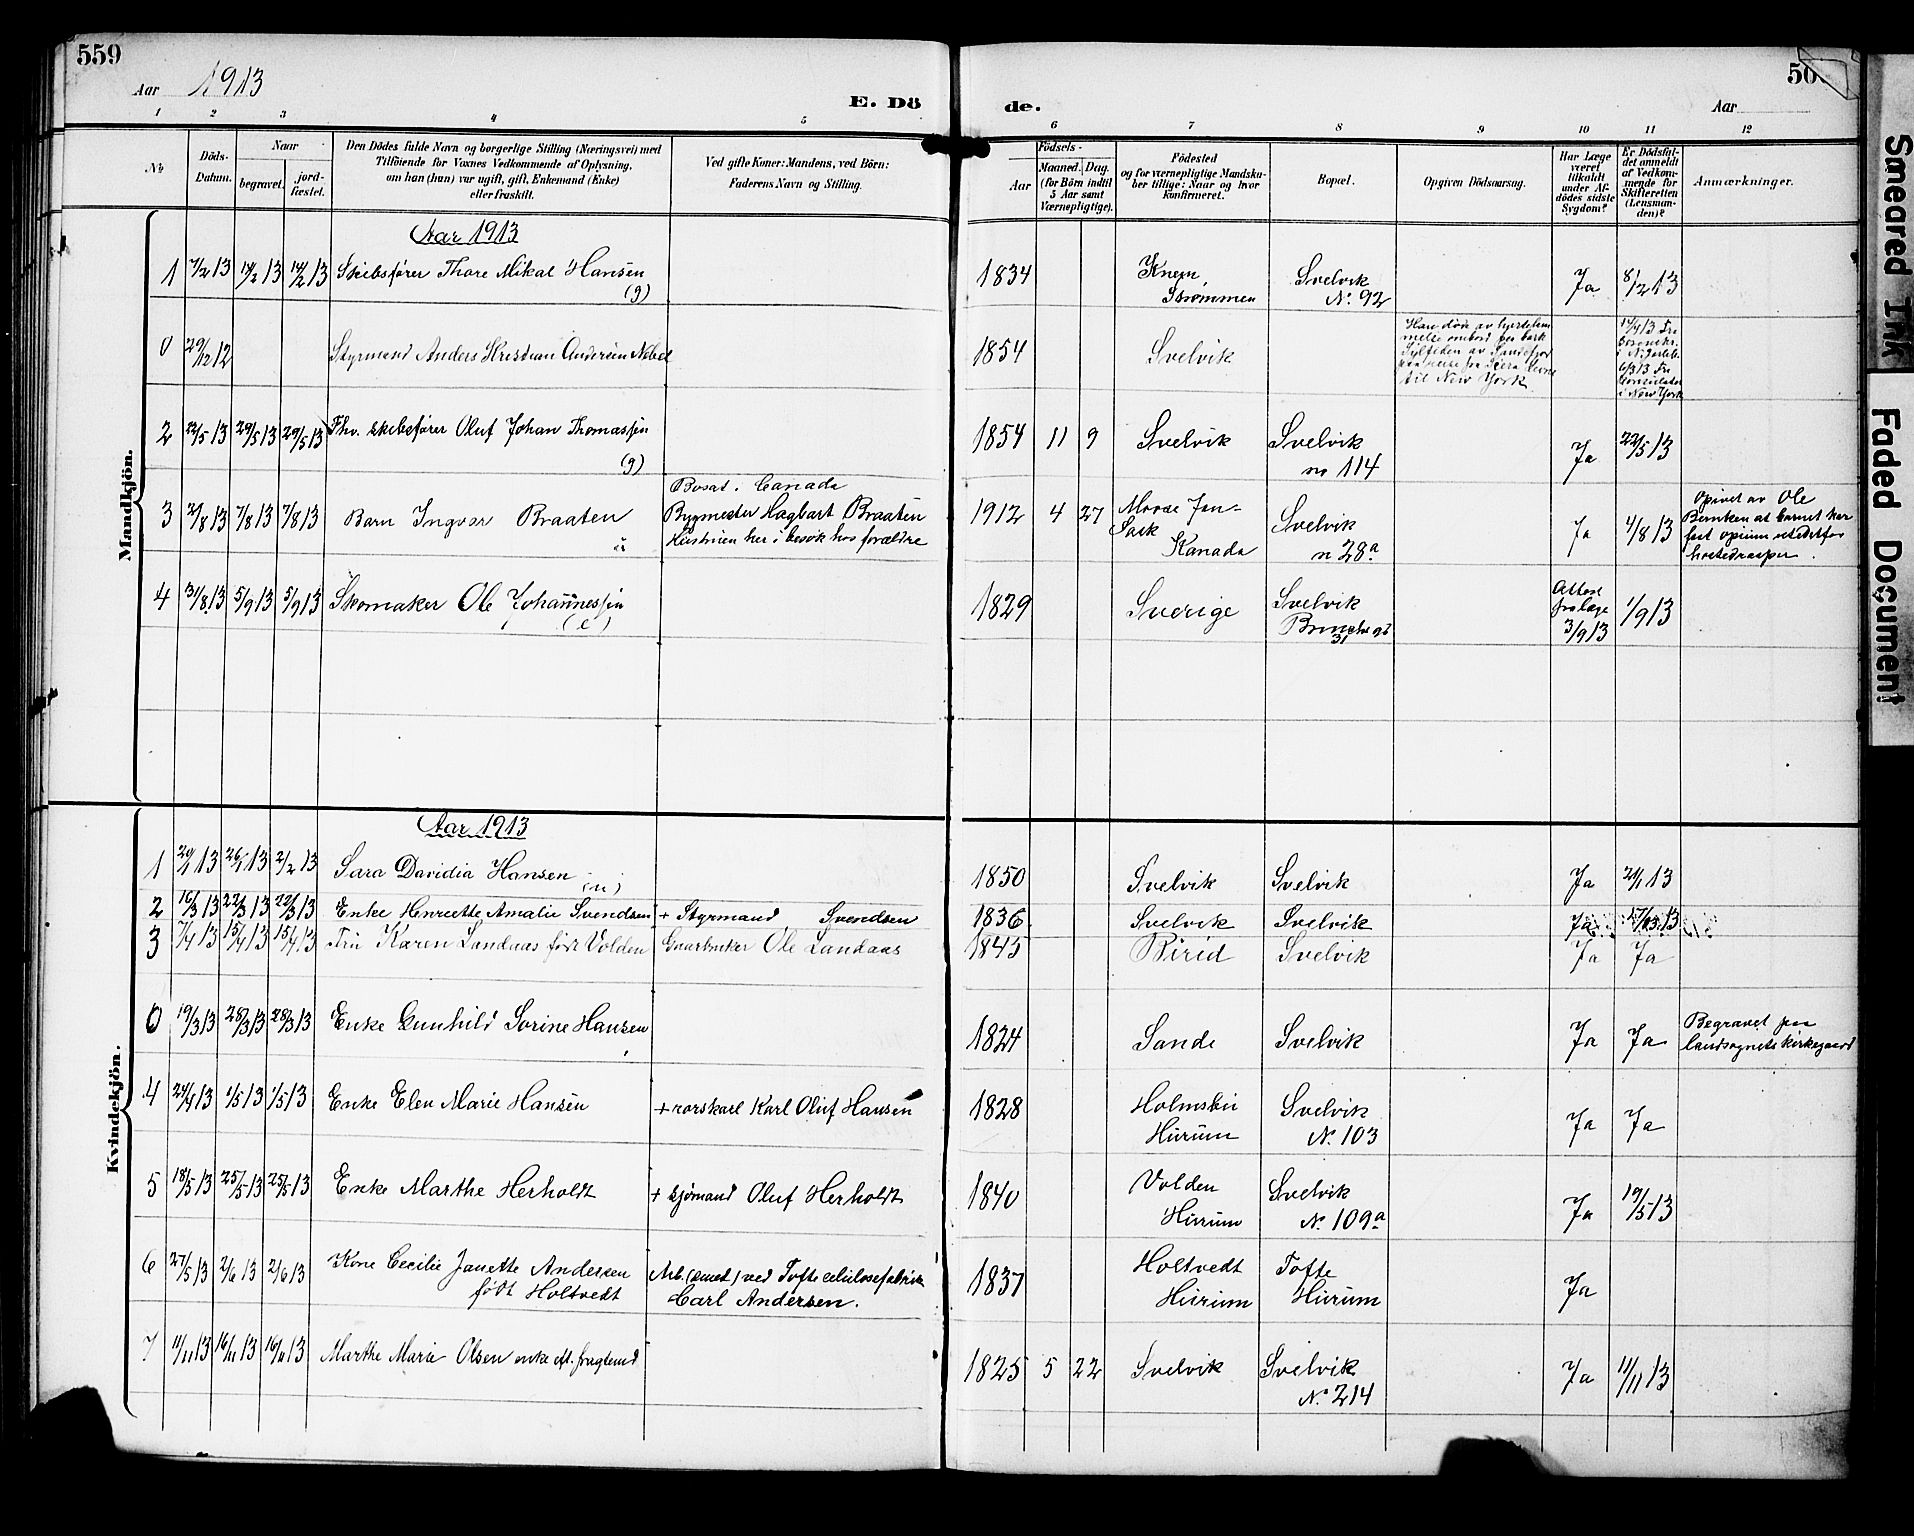 559
Aar 1913
E. Dö
de.
50
Aar
1 2 3 4 5 6 7 8 9 10 11 12
No
Döds-
Datum.
Naar
begravet.
jord-
fæstet.
Den Dödes fulde Navn og borgerlige Stilling (Næringsvei) med
Tilföiende for Voxnes Vedkommende af Oplysning,
om han (hun) var ugift, gift, Enkemand (Enke)
eller fraskilt.
Ved gifte Koner: Mandens, ved Börn:
Faderens Navn og Stilling.
Födsels-
Aar
Maaned. Dag.
(for Börn indtil
5 Aar samt
Værnepligtige).
Födested
og for værnepligtige Mandskaber tillige: Naar og hvor
konfirmeret.
Bopæl.
Opgiven Dödsaarsag.
Har Læge
været
tilkaldt
under Afdödes sidste
Sygdom?
Er Dödsfaldet anmeldt
af Vedkommende for
Skifteretten
(Lensmanden)?
Anmærkninger.
Mandkjön.
Aar 1913
1 7/2 13 14/2 13 14/2 13 Skibsfører Thore Mikal Hansen
(g)
1834 Knem
Strømmen
Svelvik
No. 92
Ja 8/2 13
0 29/12 12 Styrmand Anders Kristian Andersen Nebel
1854 Svelvik
til New York
i New York
2 22/5 13 29/5 13 29/5 13 Fhv. skibsfører Oluf Johan Thomassen
(g)
1854 11 9 Svelvik Svelvik
no 114
Ja 22/5 13
3 2/8 13 7/8 13 7/8 13 Barn Ingvar Braaten
Bosat i Canada
Bygmester Hagbart Braaten
Hustruen her i besøk hos forældre
1912 4 27 Moose Jaw
Sask
Kanada
Svelvik
n 28a
Ja 4/8 13
Opivet av Ole
Bernken at barnet har
faat opium istedetfor
hostedraaper.
4 31/8 13 5/9 13 5/9 13 Skomaker Ole Johannessen
(e)
1829 Sverige Svelvik
31
Attest
fra læge
3/9 13
1/9 13
Kvindekjön.
Aar 1913
1 20/1 13 26/1 13 2/2 13 Sara Davidia Hansen
(u)
1850 Svelvik Svelvik Ja 21/1 13
2 16/3 13 22/3 13 22/3 13 Enke Henriette Amalie Svendsen + Styrmand Svendsen
1836 Svelvik Svelvik Ja 17/3 13
3 7/4 13 15/4 13 15/4 13 Fru Karen Landaas født Volden Gaarbruker Ole Landaas
1845 Birid Svelvik Ja Ja
0 19/3 13 28/3 13 28/3 13 Enke Gunhild Sorine Hansen
1824 Sande Svelvik Ja Ja
Begravet paa
landsognets kirkegaard
4 24/4 13 1/5 13 1/5 13 Enke Elen Marie Hansen + rorskarl Karl Oluf Hansen
1828 Holmsbu
Hurum
Svelvik
No. 103
Ja Ja
5 18/5 13 25/5 13 25/5 13 Enke Marthe Herholdt + sjømand Oluf Herholdt
1840 Volden
Hurum
Svelvik
No. 109a
Ja 19/5 13
6 27/5 13 2/6 13 2/6 13 Kone Cecilie Janette Andersen
født Holtvedt
Arb. (smed) ved Tofte celulosefabrik
Carl Andersen.
1837 Holtvedt
Hurum
Tofte
Hurum
Ja
7 11/11 13 16/11 13 16/11 13 Marthe Marie Olsen enke eft. fragtemd
1825 5 22 Svelvik Svelvik
No. 214
Ja 11/11 13
Smeared Ink
Faded Document